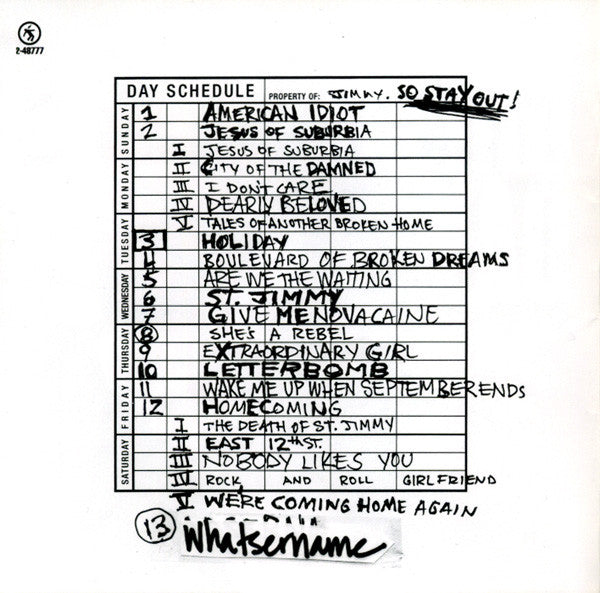 2-48777
DAY SCHEDULE PROPERTY OF: JIMMY. SO STAY OUT!
SUNDAY
MONDAY
TUESDAY
WEDNESDAY
THURSDAY
FRIDAY
SATURDAY
1 AMERICAN IDIOT
2 JESUS OF SUBURBIA
I JESUS OF SUBURBIA
II CITY OF THE DAMNED
III I DON'T CARE
IV DEARLY BELOVED
V TALES OF ANOTHER BROKEN HOME
3 HOLIDAY
4 BOULEVARD OF BROKEN DREAMS
5 ARE WE THE WAITING
6 ST. JIMMY
7 GIVE ME NOVACAINE
8 SHE'S A REBEL
9 EXTRAORDINARY GIRL
10 LETTERBOMB
11 WAKE ME UP WHEN SEPTEMBER ENDS
12 HOMECOMING
I THE DEATH OF ST. JIMMY
II EAST 12th ST.
III NOBODY LIKES YOU
IV ROCK AND ROLL GIRLFRIEND
V WE'RE COMING HOME AGAIN
13 Whatsername